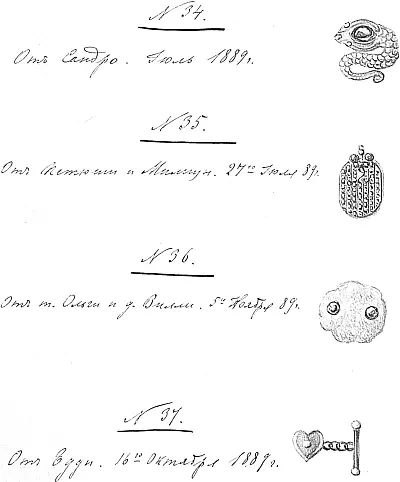 N 34.
Отъ Сандро. Іюль 1889 г.
N 35.
Отъ Кетюши и Милицы. 27го Іюля 89 г.
N 36.
Отъ т. Ольги и д. Вилли. 5го Ноября 89 г.
N 37.
Отъ Эдди. 16го Октября 1889 г.